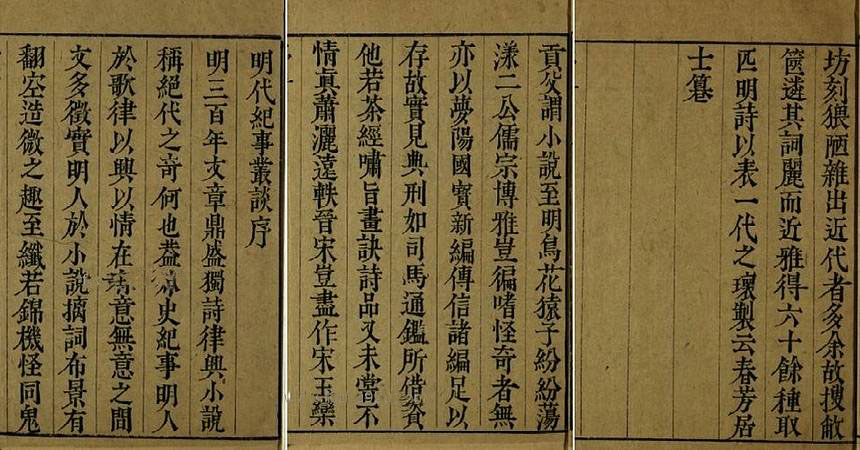 明代紀事叢談序
明三百年文章鼎盛獨詩律與小說
稱絕代之奇何也葢史紀事明人
於歌律以興以情在意無意之間
文多徵實明人於小說摛詞布景有
翻空造微之趣至纖若錦機怪同鬼
貢父謂小說至明鳥花猿子紛紛蕩
漾二公儒宗博雅豈徧嗜怪奇者無
亦以夢陽國寶新編傳信諸編足以
存故實見典刑如司馬通鑑所借資
他若茶經嘯旨畫訣詩品又未嘗不
情真蕭灑遠軼晉宋豈盡作宋玉欒
坊刻猥陋雜出近代者多余故搜敝
篋遴其詞麗而近雅得六十餘種取
匹明詩以表一代之瓌製云春芳居
士識